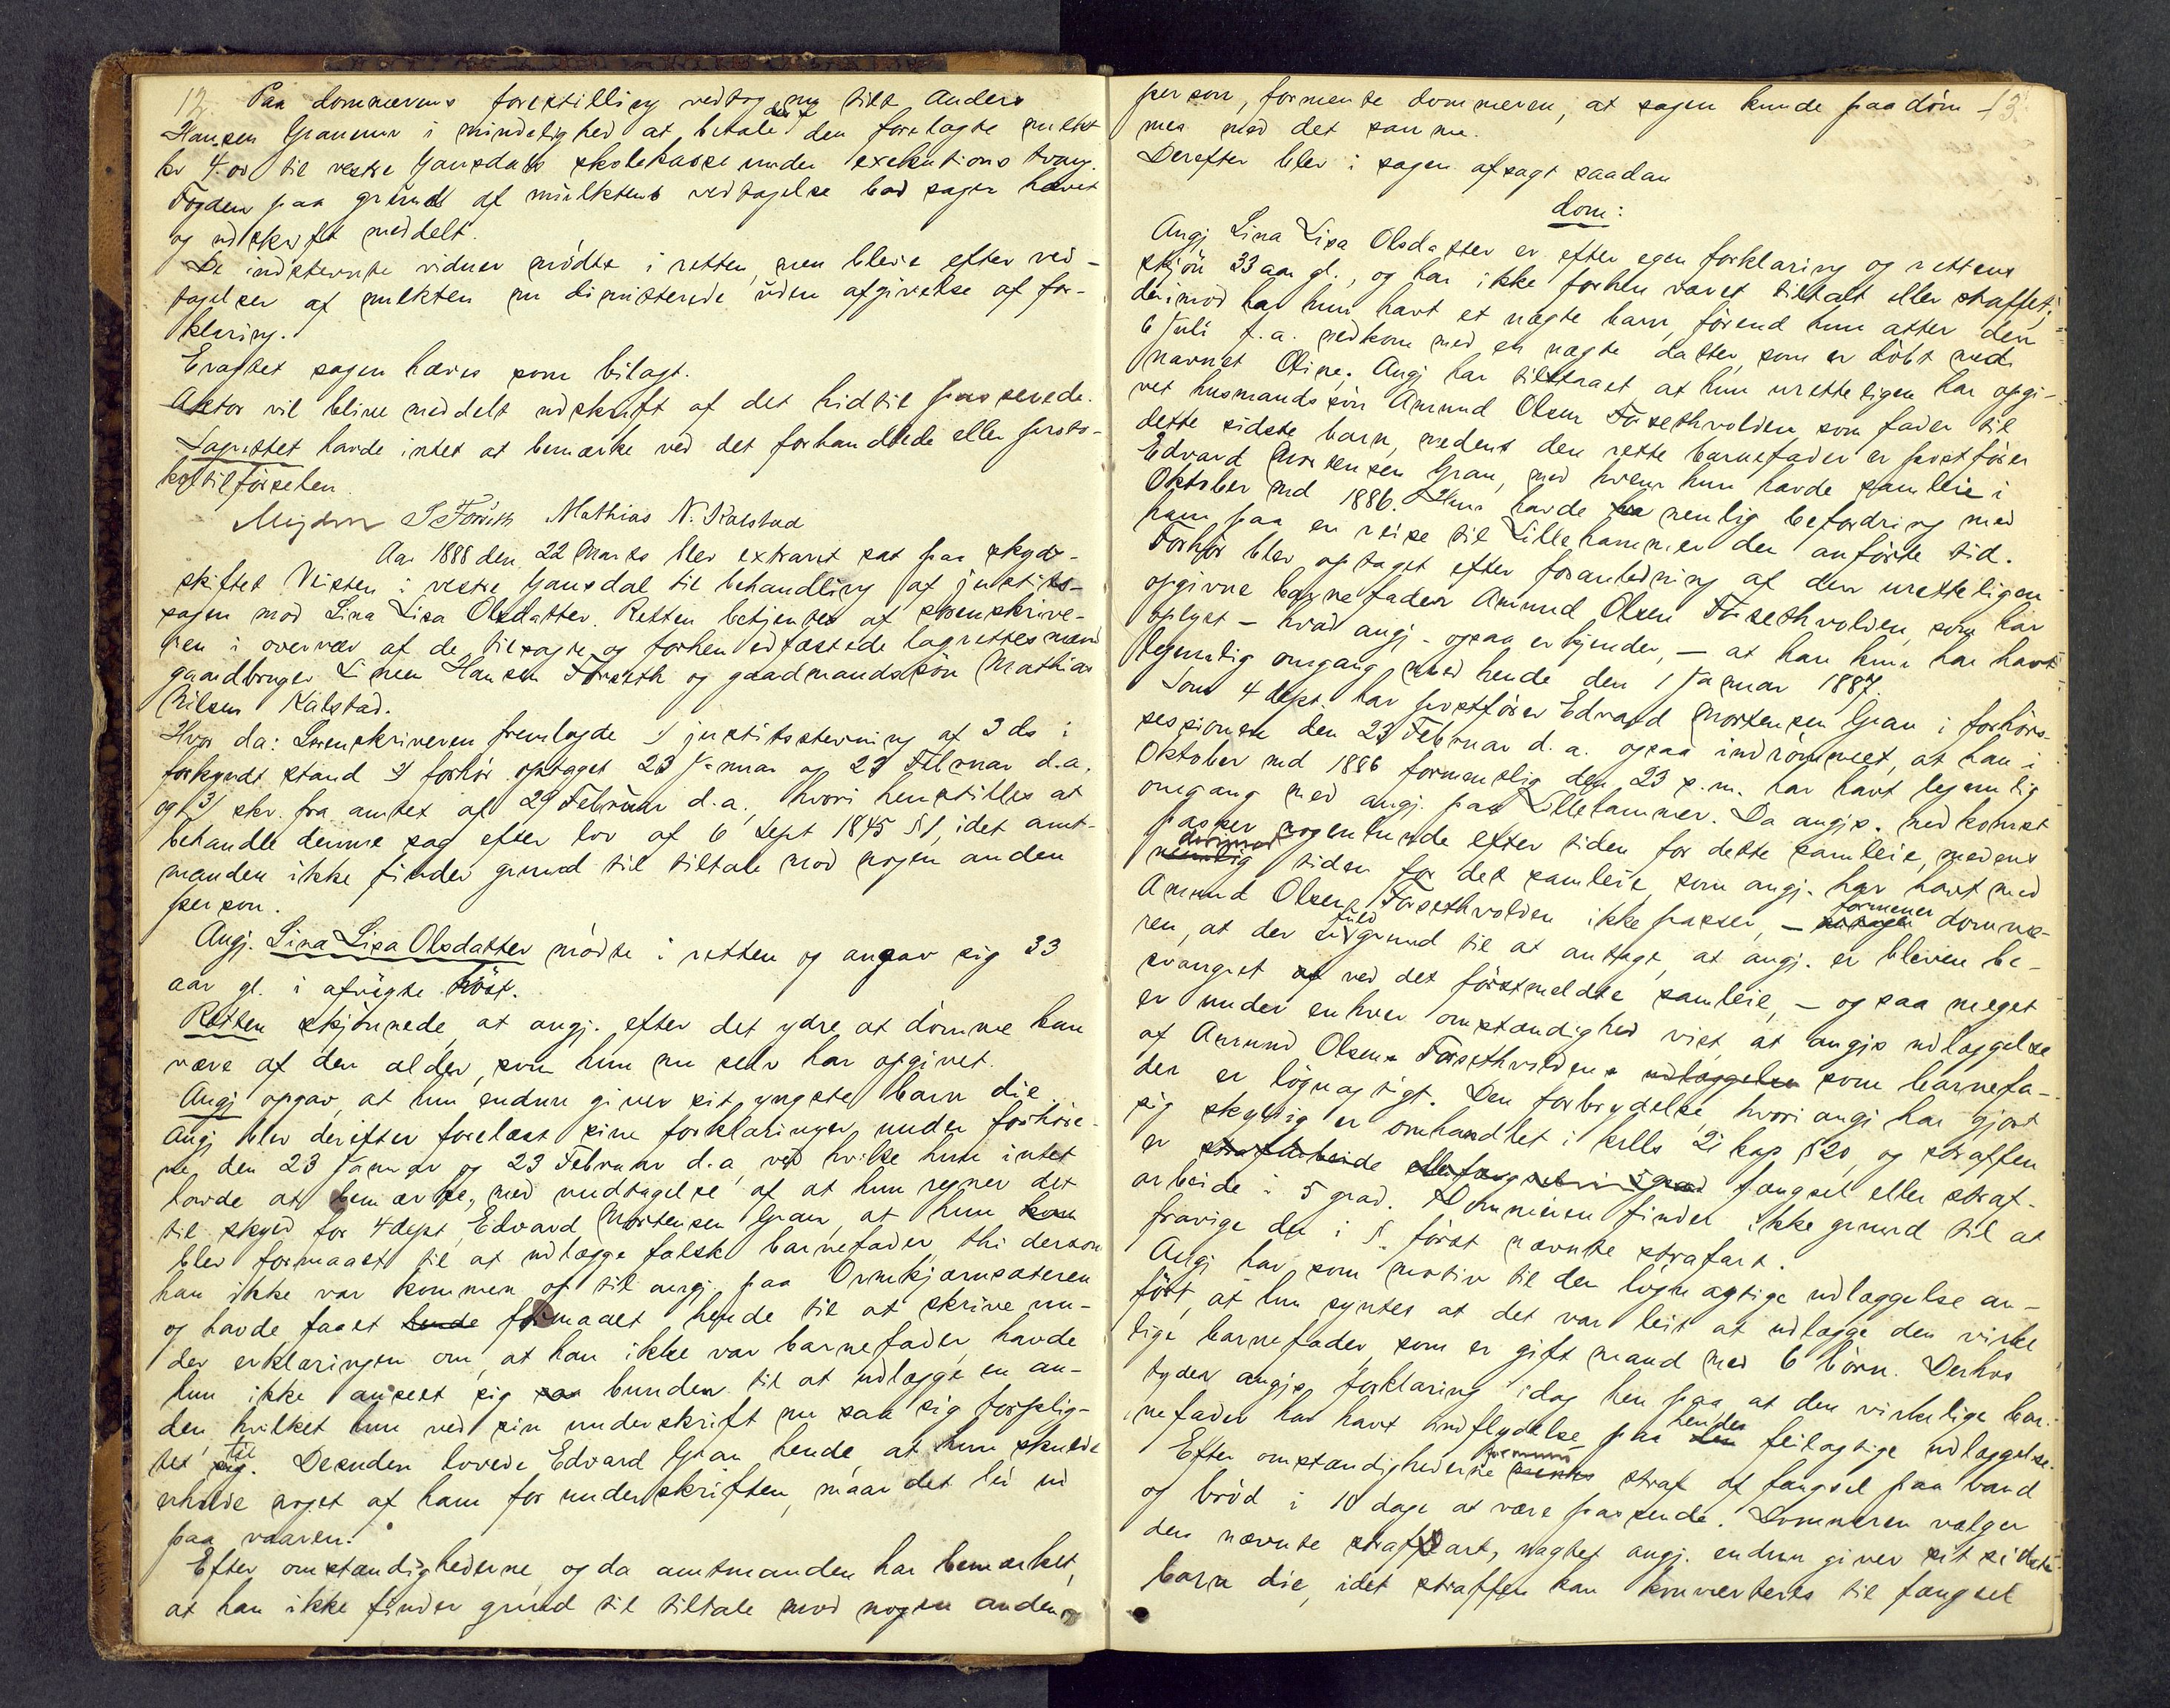 12.
Paa dommerens forestilling vedtog nu tilt. Anders
Hansen Granmur i mindelighed at betale den forelagte mulkt
kr 4.00 til vestre Gausdals skolekasse under exekutions tvang.
Fogden paa grund af mulktens vedtagelse bad sagen hævet
og udskrift meddelt.
De indstevnte vidner mødte i retten, men bleve efter ved-
tagelsen af mulkten nu dimitterede uden afgivelse af for-
klaring.
Eragtet sagen hæves som bilagt.
Aktor vil blive meddelt udskrift af det hidtil passerede.
Lagrettet havde intet at bemærke ved det forhandlede eller proto-
koltilførselen.
S Forseth Mathias N. Kalstad
Aar 1888 den 22 Marts blev extraret sat paa skyds-
skiftet Veisten i vestre Gausdal til behandling af justits-
sagen mod Lina Lisa Olsdatter. Retten betjentes af sorenskrive-
ren i overvær af de tilsagte og forhen edfæstede lagrettesmænd
gaardbruger Simen Hansen Forseth og gaardmandssøn Mathias
Nilsen Kalstad.
Hvor da: Sorenskriveren fremlagde 1) justitsstevning af 3 ds i
forkyndt stand 2) forhør optaget 23 Januar og 23 Februar d.a.
og 3) skr. fra amtet af 29 Februar d.a., hvori henstilles at
behandle denne sag efter lov af 6 Sept 1845 § 1, idet amt-
manden ikke finder grund til tiltale mod nogen anden
person.
Angj. Lina Lisa Olsdatter mødte i retten og angav sig 33
aar gl. i afvigte høst.
Retten skjønnede, at angj. efter det ydre at dømme kan
være af den alder, som hun nu selv har opgivet.
Angj opgav, at hun endnu giver sit yngste barn die.
Angj blev derefter forelæst sine forklaringer under forhøre-
ne den 23 Januar og 23 Februar d.a, ved hvilke hun intet
havde at bemærke, med undtagelse af at hun regner det
til skyld for 4 dept Edvard Mortensen Gran, at hun kom
blev formaaet til at udlægge falsk barnefader, thi dersom
han ikke var kommen op til angj. paa Ormkjærnsæteren
og havde faaet hende formaaet hende til at skrive un-
der erklæringen om, at han ikke var barnefader, havde
hun ikke anseet sig saa bunden til at udlægge en an-
den, hvilket hun ved sin underskrift nu saa sig forplig-
tet til sig. Desuden lovede Edvard Gran hende, at hun skulde
erholde noget af ham for underskriften, naar det led ud
paa vaaren.
Efter omstændighederne, og da amtmanden har bemærket,
at han ikke finder grund til tiltale mod nogen anden
13.
person, formente dommeren, at sagen kunde paadøm-
mes med det samme.
Derefter blev i sagen afsagt saadan
dom:
Angj Lina Lisa Olsdatter er efter egen forklaring og rettens
skjøn 33 aar gl., og har ikke forhen været tiltalt eller straffet;
derimod har hun havt et uægte barn, førend hun atter den
6 Juli f.a. nedkom med en uægte datter, som er døbt med
navnet Oline. Angj har tilstaaet at hun urettelig en har opgi-
vet husmandssøn Amund Olsen Forsethvolden som fader til
dette sidste barn, medens den rette barnefader er postfører
Edvard Mortensen Gran, med hvem hun havde samleie i
Oktober md 1886. Hun havde nemlig befordring med
ham paa en reise til Lillehammer den anførte tid.
Forhør blev optaget efter foranledning af den uretteligen
opgivne barnefader Amund Olsen Forsethvolden, som har
oplyst – hvad angj. ogsaa erkjender, – at han kun har havt
legemlig omgang med hende den 1 Januar 1887.
Som 4 dept. har postfører Edvard Mortensen Gran i forhørs-
sessionen den 23 Februar d.a. ogsaa indrømmet, at han i
Oktober md 1886 formentlig den 23 s.m. har havt legemlig
omgang med angj. paa Lillehammer. Da angjs. nedkomst
passer nogenlunde efter tiden for dette samleie, medens
nemlig derimod tiden for det samleie, som angj. har havt med
Amund Olsen Forsethvolden ikke passer, – formener domme-
ren, at der er fuld grund til at antage, at angj. er bleven be-
svangret af ved det førstmeldte samleie, – og saa meget
er under enhver omstændighed vist, at angjs udlæggelse
af Amund Olsen Forsethvolden udlæggelse som barnefa-
der er løgnagtigt. Den forbrydelse, hvori angj har gjort
sig skyldig er omhandlet i krlls 21 kap § 20, og straffen
er strafarbeide eller fængsel i 5 grad fængsel eller straf-
arbeide i 5 grad. Dommeren finder ikke grund til at
fravige den i §. først nævnte strafart.
Angj har som motiv til den løgnagtige udlæggelse an-
ført, at hun syntes at det var leit at udlægge den virke
lige barnefader, som er gift mand med 6 børn. Derhos
tyder angjs forklaring idag hen paa at den virkelige bar-
nefader har havt indflydelse paa hendes feilagtige udlæggelse.
Efter omstændighederne formenes straf af fængsel paa vand
og brød i 10 dage at være passende. Dommeren vælger
den nævnte strafart, uagtet angj. endnu giver sit sidste
barn die, idet straffen kan konverteres til fængsel